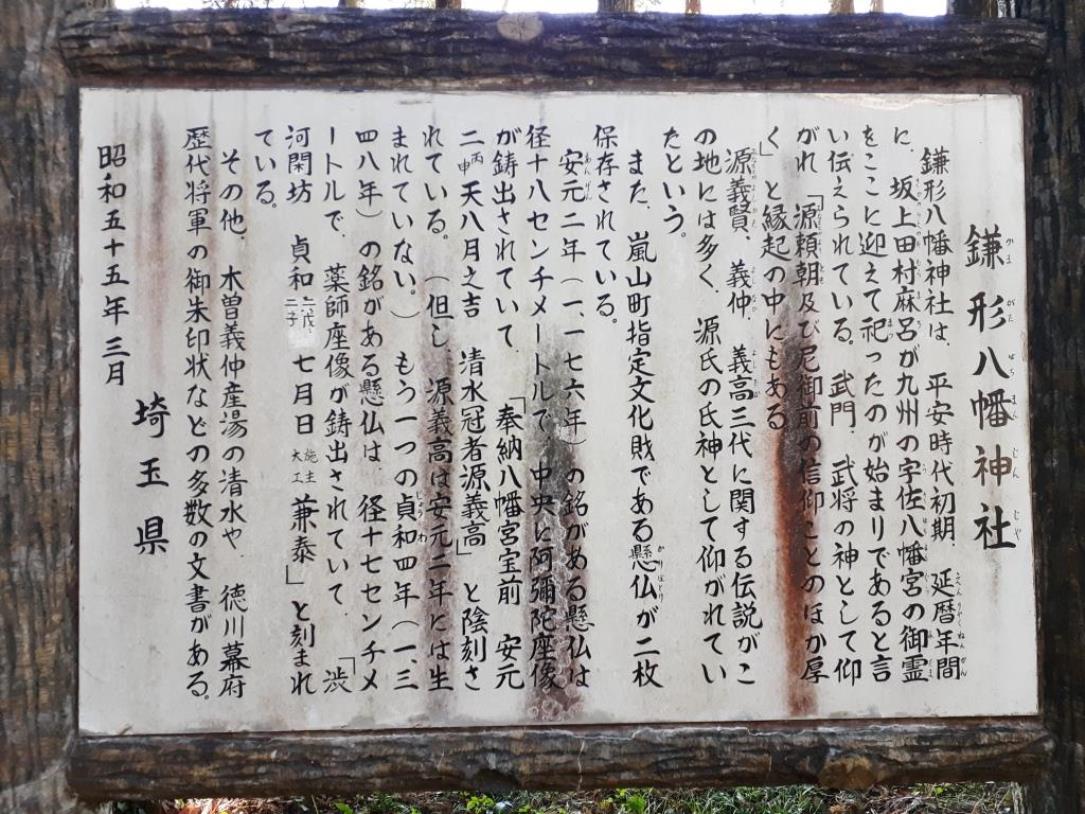 鎌形八幡神社
鎌形八幡神社は、平安時代初期、延暦年間
に、坂上田村麻呂が九州の宇佐八幡宮の御霊
をここに迎えて祀ったのが始まりであると言
い伝えられている。武門、武将の神として仰
がれ「源頼朝及び尼御前の信仰ことのほか厚
く」と縁起の中にもある
源義賢、義仲、義高三代に関する伝説がこ
の地には多く、源氏の氏神として仰がれてい
たという。
また、嵐山町指定文化財である懸仏が二枚
保存されている。
安元二年(一、一七六年)の銘がある懸仏は
径十八センチメートルで、中央に阿彌陀座像
が鋳出されていて、「奉納八幡宮宝前 安元
二丙申天八月之吉 清水冠者源義高」と陰刻さ
れている。(但し、源義高は安元二年には生
まれていない。)もう一つの貞和四年(一、三
四八年)の銘がある懸仏は、径十七センチメ
ートルで、薬師座像が鋳出されていて、「渋
河閑坊 貞和 七月日 施主大工 兼泰」と刻まれ
ている。
その他、木曽義仲産湯の清水や、徳川幕府
歴代将軍の御朱印状などの多数の文書がある。
昭和五十五年三月
埼玉県